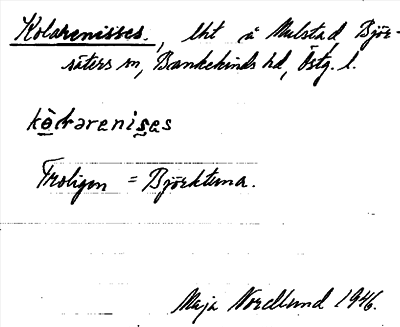 Kolarenisses., lht å Mulstad Björ-
säters sn, Bankekinds hd, Östg. l.
kò̱larenises
Troligen = Björktuna.
Maja Nordlund 1946.